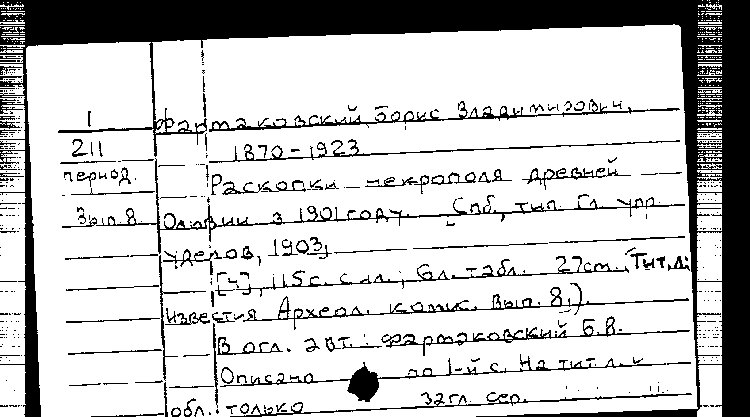 1 Фармаковский, Борис Владимирович,
211 1870-1923
период. Раскопки некрополя древней
Вып. 8 Ольвии в 1901 году. Спб., тип. Гл. упр.
уделов, 1903,
[4], 115 с. с ил.; 6 л. табл. 27 cm. (Тит. л.:
Известия Археол. комис. Вып. 8,).
В огл. авт.: Фармаковский Б.В.
Описано по 1-й с. На тит. л. и
обл. только загл. сер.